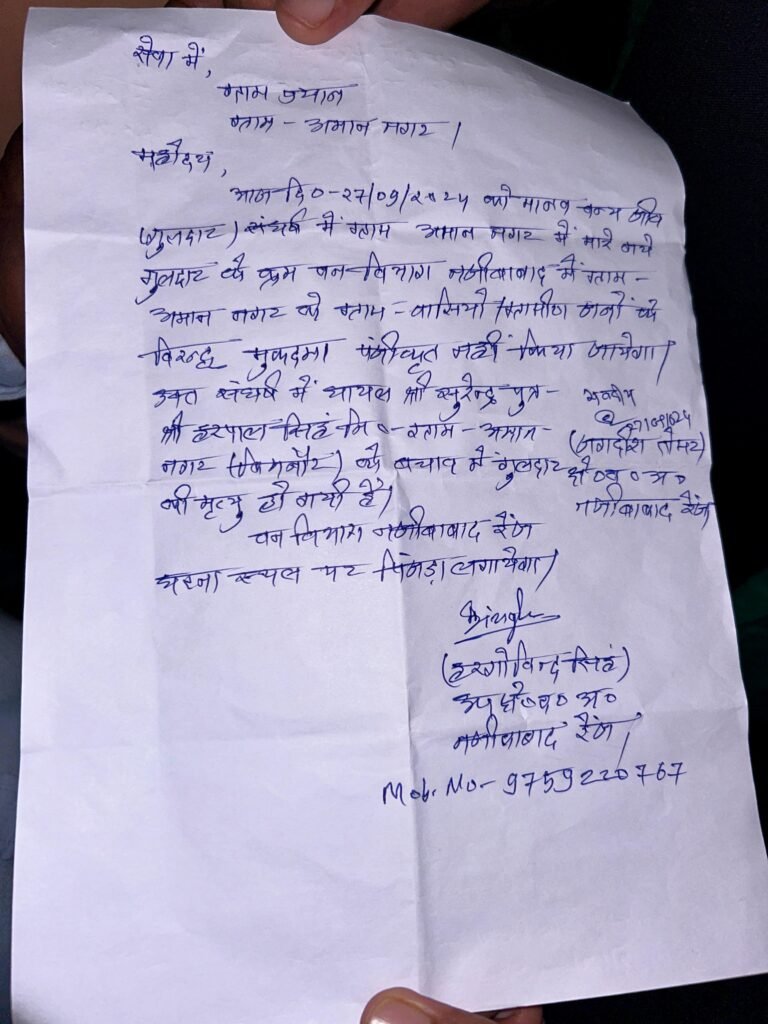 सेवा में,
ग्राम प्रधान
ग्राम - अमान नगर।
महोदय,
आज दि०-27/09/2024 को मानव वन्य जीव
(गुलदार) संघर्ष में ग्राम अमान नगर में मारे गये
गुलदार के क्रम वन-विभाग नजीबाबाद में ग्राम-
अमान नगर के ग्राम-वासियों/ग्रामीण जनों के
विरुद्ध मुकदमा पंजीकृत नहीं किया जायेगा।
उक्त संघर्ष में घायल श्री सुरेन्द्र पुत्र-
श्री हरपाल सिहं नि०-ग्राम-अमान-
नगर (बिजनौर) के बचाव में गुलदार
की मृत्यु हो गयी है।
वन विभाग नजीबाबाद रेंज
घटना स्थल पर पिंजड़ा लगायेगा।
27/09/24
(जगदीश तोमर)
क्षे०व०अ०
नजीबाबाद रेंज
(हरगोविन्द सिहं)
उप क्षे०व०अ०
नजीबाबाद रेंज।
Mob. No- 9759220767